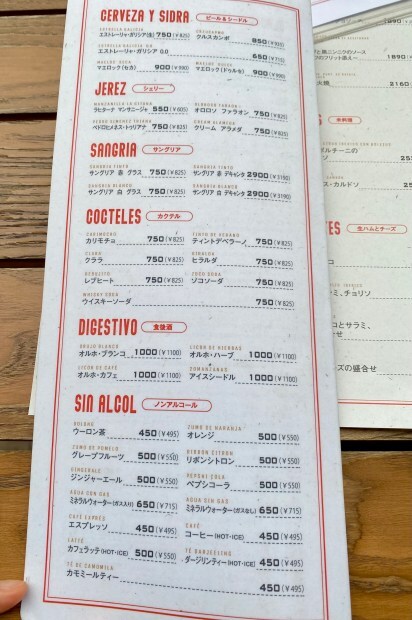 CERVEZA Y SIDRA ビール&シードル
ESTRELLA GALICIA
エストレーリャ・ガリシア(生) 750(¥825)
CRUZCAMPO
クルスカンポ 850(¥935)
ESTRELLA GALICIA 0.0
エストレーリャ・ガリシア 0.0 650(¥715)
MAELOC SECA
マエロック(セカ) 900(¥990)
MAELOC DULCE
マエロック(ドゥルセ) 900(¥990)
JEREZ シェリー
MANZANILLA LA GITANA
ラヒターナ マンサニージャ 550(¥605)
OLOROSO FARAON
オロロソ ファラオン 750(¥825)
PEDRO XIMENEZ TRIANA
ペドロヒメネス・トゥリアナ 750(¥825)
CREAM ALAMEDA
クリーム アラメダ 750(¥825)
SANGRIA サングリア
SANGRIA TINTO
サングリア 赤 グラス 750(¥825)
SANGRIA TINTO
サングリア 赤 デキャンタ 2900(¥3190)
SANGRIA BLANCO
サングリア 白 グラス 750(¥825)
SANGRIA BLANCO
サングリア 白 デキャンタ 2900(¥3190)
COCTELES カクテル
CALIMOCHO
カリモチョ 750(¥825)
TINTO DE VERANO
ティントデベラーノ 750(¥825)
CLARA
クララ 750(¥825)
GIRALDA
ヒラルダ 750(¥825)
REBUJITO
レブヒート 750(¥825)
ZOCO SODA
ゾコソーダ 750(¥825)
WHISKY SODA
ウイスキーソーダ 750(¥825)
DIGESTIVO 食後酒
ORUJO BLANCO
オルホ・ブランコ 1000(¥1100)
LICOR DE HIERBAS
オルホ・ハーブ 1000(¥1100)
LICOR DE CAFÉ
オルホ・カフェ 1000(¥1100)
アイスシードル 1000(¥1100)
SIN ALCOL ノンアルコール
OOLONG
ウーロン茶 450(¥495)
ZUMO DE NARANJA
オレンジ 500(¥550)
ZUMO DE POMELO
グレープフルーツ 500(¥550)
RIBBON CITRON
リボンシトロン 500(¥550)
GINGERALE
ジンジャーエール 500(¥550)
PEPSI COLA
ペプシコーラ 500(¥550)
AGUA CON GAS
ミネラルウォーター(ガス入り) 650(¥715)
AGUA SIN GAS
ミネラルウォーター(ガスなし) 650(¥715)
CAFÉ EXPRES
エスプレッソ 450(¥495)
CAFÉ
コーヒー(HOT・ICE) 450(¥495)
LATTE
カフェラッテ(HOT・ICE) 500(¥550)
TÉ DARJEELING
ダージリンティー(HOT・ICE) 450(¥495)
TÉ DE CAMOMILA
カモミールティー 450(¥495)
と黒ニンニクのソース
のフリット添え
1890
米料理
ボルチーニの
ソース
ス・カルドソ
生ハムとチーズ
サラミ、チョリソ
コとサラミ、
ーズの盛合せ